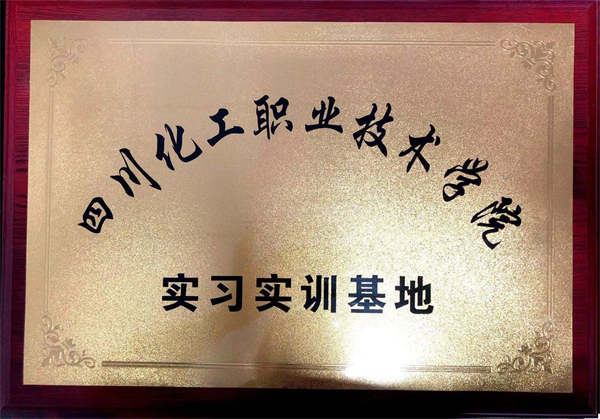 四川化工职业技术学院
实习实训基地